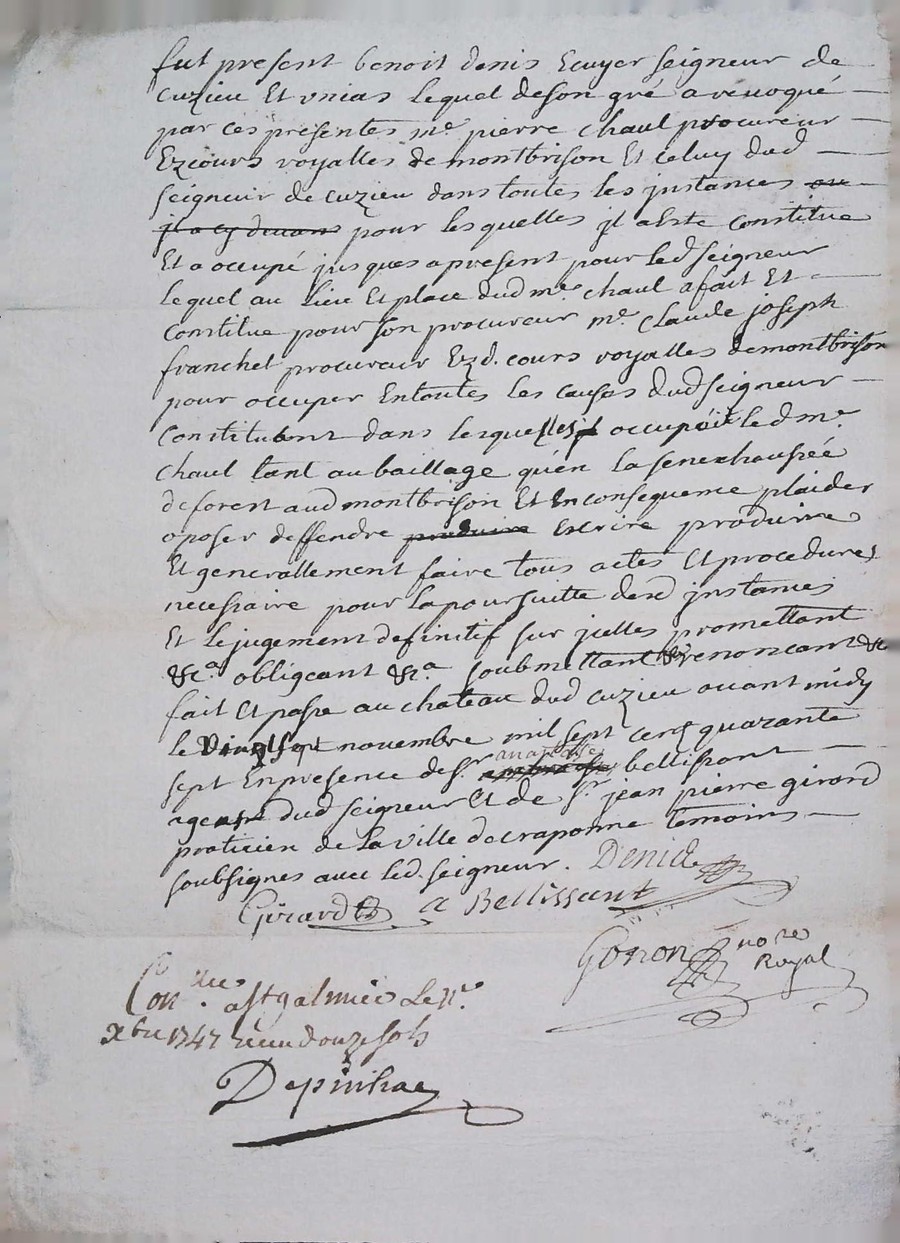 fut present benoit denis Ecuyer seigneur de
cuzieu Et unias lequel deson gré a revoqué
par ces presentes me pierre chaul procureur
Ezcours royalles de montbrison Et celuy dud
seigneur de cuzieu dans toutes les instances ou
il a cy devant pour lesquelles il a Esté constitue
Et a occupé jusques apresent pour led seigneur
lequel au lieu Et place dud me chaul a fait Et
constitue pour son procureur me claude joseph
franchet procureur Ezd. cours royalles demontbrison
pour occuper Entoutes les causes dud seigneur
constituant dans lesquelles occupoit led me
chaul tant au baillage qu'en la senechaussée
deforest aud montbrison Et En consequence plaider
oposer deffendre produire escrire produire
Et generallement faire tous actes Et procedures
necessaire pour la poursuitte desd instances
Et le jugement definitif sur jcelles promettant
&ca obligeant &ca soubmettant &c renoncant &c
fait Et passe au chateau dud cuzieu avant midy
le vingt sept novembre mil sept cent quarante
sept En presence de sr anthoisse bellissant
agent dud seigneur Et de sr jean pierre girard
praticien de la ville de craponne temoins
soubsignes avec led. seigneur. Denis
Girard A Bellissant
Gonon nore
Royal
Conlles a st galmier Le 11e
xbre 1747 Receu douze sols
Depinhac